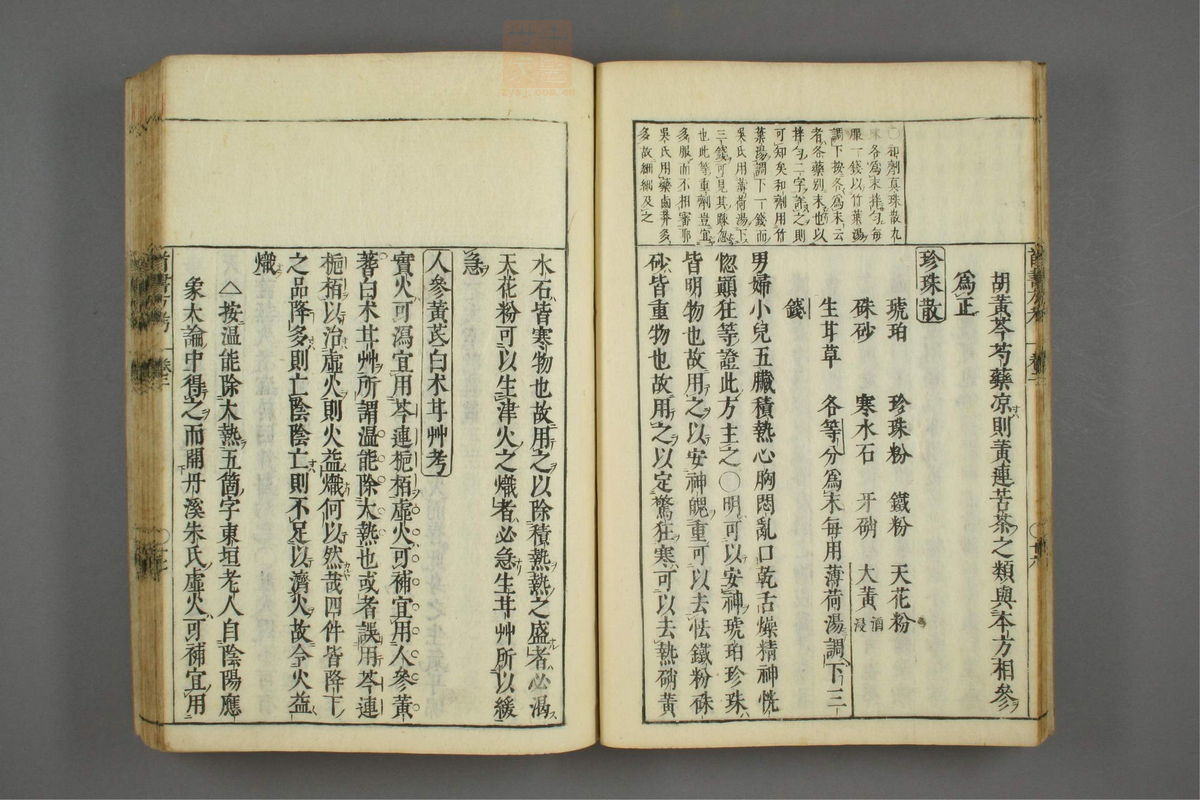 胡黃芩芍藥凉則黃連苦茶之類與本方相參
爲正
珍珠散
琥珀 珍珠粉 鐵粉 天花粉
硃砂 寒水石 牙硝 大黃酒浸
生甘草 各等分爲末每用薄荷湯調下三
錢
男婦小兒五臟積熱心胸悶亂口乾舌燥精神恍
惚顚狂等證此方主之○明可以安神琥珀珍珠
皆明物也故用之以安神魄重可以去怯鐵粉硃
砂皆重物也故用之以定驚狂寒可以去熱硝黃
○和劑眞珠散九
味各爲末拌勻每
服一錢以竹葉湯
調下按各爲末云
者各藥別末也以
拌勻二字詳之則
可知矣和劑用竹
葉湯調下一錢而
吳氏用薄荷湯下
三錢可見其踈忽
也此等重劑豈宜
多服而不相審耶
吳氏用藥鹵莽多
多故細細及之
水石皆寒物也故用之以除積熱熱之盛者必渴
天花粉可以生津火之熾者必急生甘艸所以緩
急
人參黃芪白朮甘艸考
實火可瀉宜用芩連梔栢虛火可補宜用人參黃
蓍白朮甘艸所謂溫能除大熱也或者誤用芩連
梔栢以治虛火則火益熾何以然哉四件皆降下
之品降多則亡陰陰亡則不足以濟火故令火益
熾
△按溫能除大熱五箇字東垣老人自陰陽應
象大論中得之而開丹溪朱氏虛火可補宜用